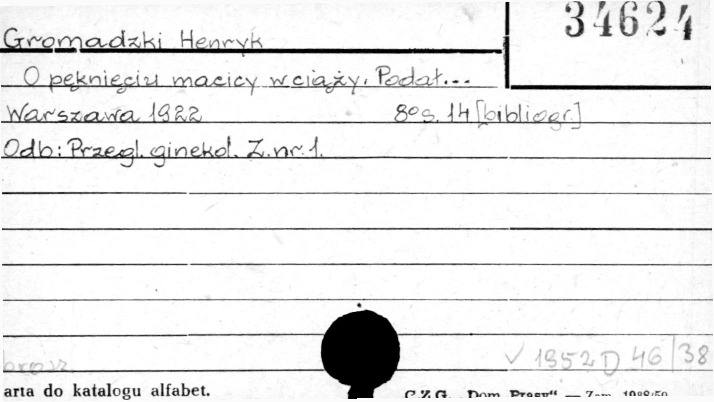 34624
Gromadzki Henryk
O pęknięciu macicy w ciąży. Podał...
Warszawa 1922 8° s. 14 [bibliogr.]
Odb: Przegl. ginekol. Z. nr. 1.
brosz.
√ 1952 D 46/38
arta do katalogu alfabet. C.Z.G. „Dom Prasy“ — Zam.